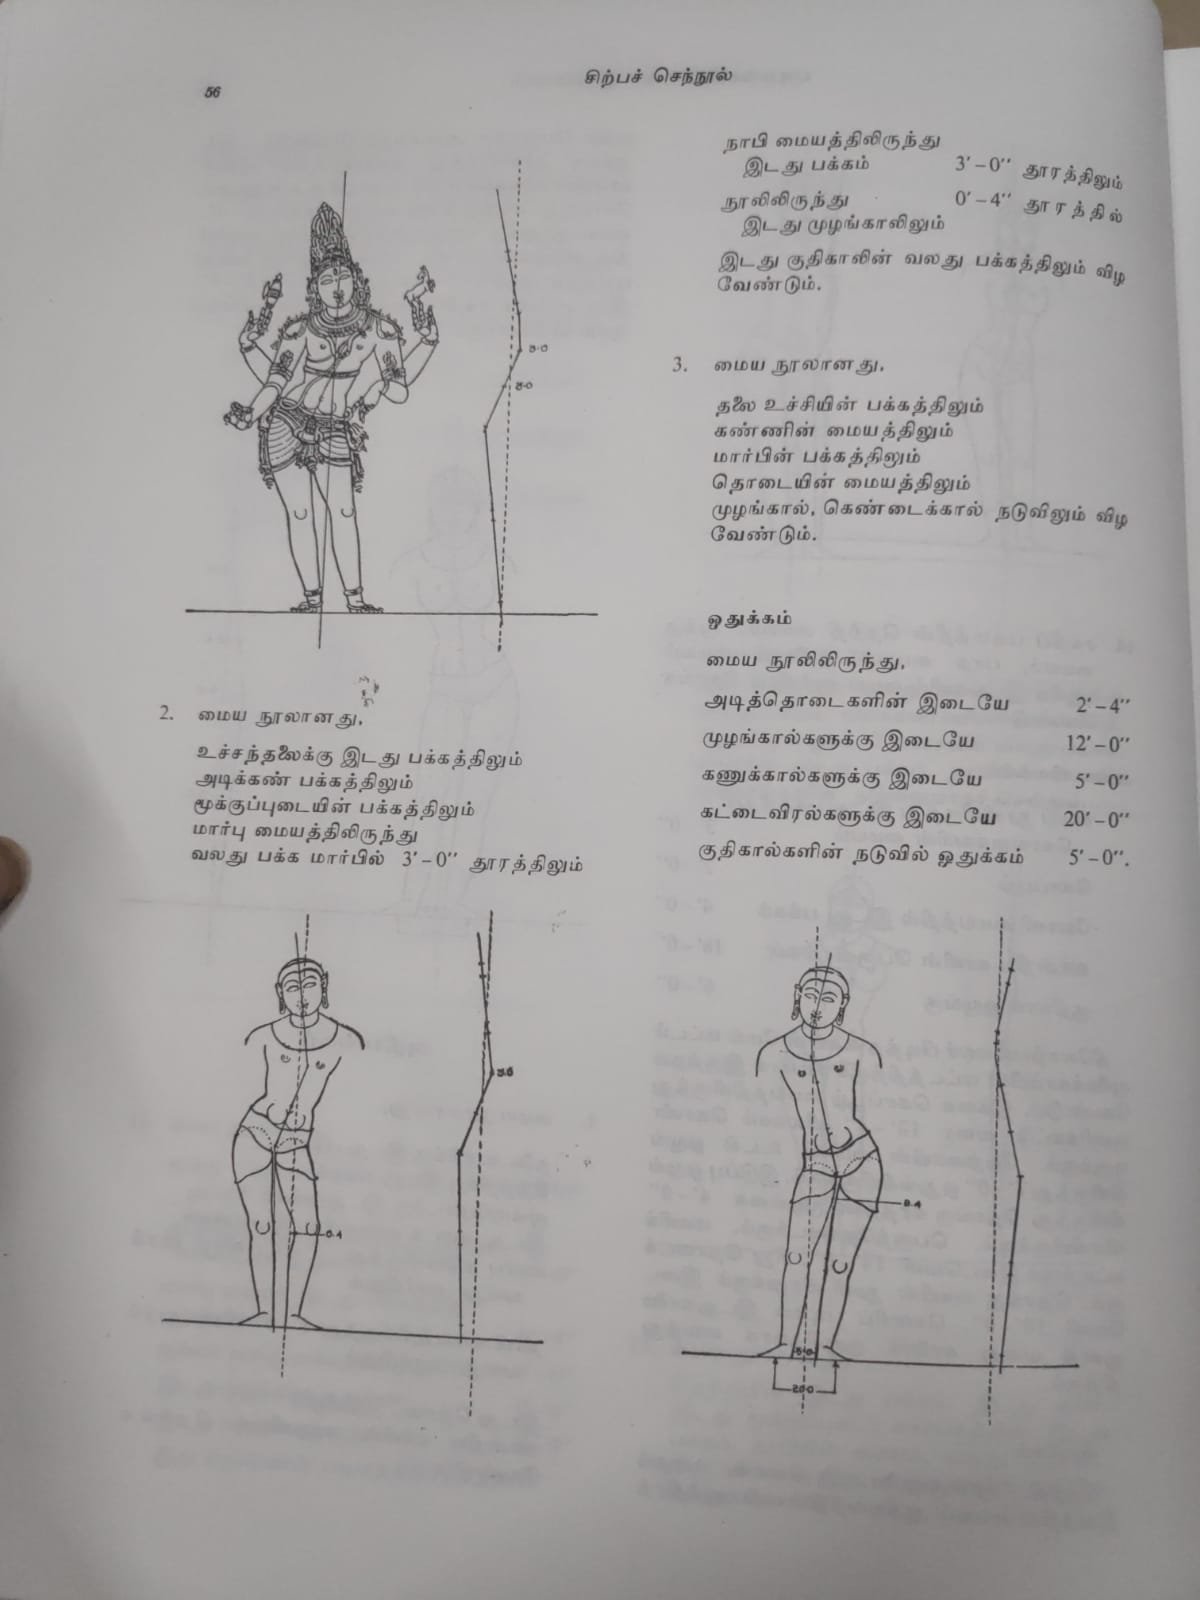 56
சிற்பச் செந்நூல்
5-0
5-0
2. மைய நூலானது,
உச்சந்தலைக்கு இடது பக்கத்திலும்
அடிக்கண் பக்கத்திலும்
மூக்குப்புடையின் பக்கத்திலும்
மார்பு மையத்திலிருந்து
வலது பக்க மார்பில் 3′–0′′ தூரத்திலும்
0.4
நாபி மையத்திலிருந்து
இடது பக்கம் 3′–0′′ தூரத்திலும்
நூலிலிருந்து 0′–4′′ தூரத்தில்
இடது முழங்காலிலும்
இடது குதிகாலின் வலது பக்கத்திலும் விழ
வேண்டும்.
3. மைய நூலானது,
தலை உச்சியின் பக்கத்திலும்
கண்ணின் மையத்திலும்
மார்பின் பக்கத்திலும்
தொடையின் மையத்திலும்
முழங்கால், கெண்டைக்கால் நடுவிலும் விழ
வேண்டும்.
ஒதுக்கம்
மைய நூலிலிருந்து,
அடித்தொடைகளின் இடையே 2′–4′′
முழங்கால்களுக்கு இடையே 12′–0′′
கணுக்கால்களுக்கு இடையே 5′–0′′
கட்டைவிரல்களுக்கு இடையே 20′–0′′
குதிகால்களின் நடுவில் ஒதுக்கம் 5′–0′′.
5-0
200